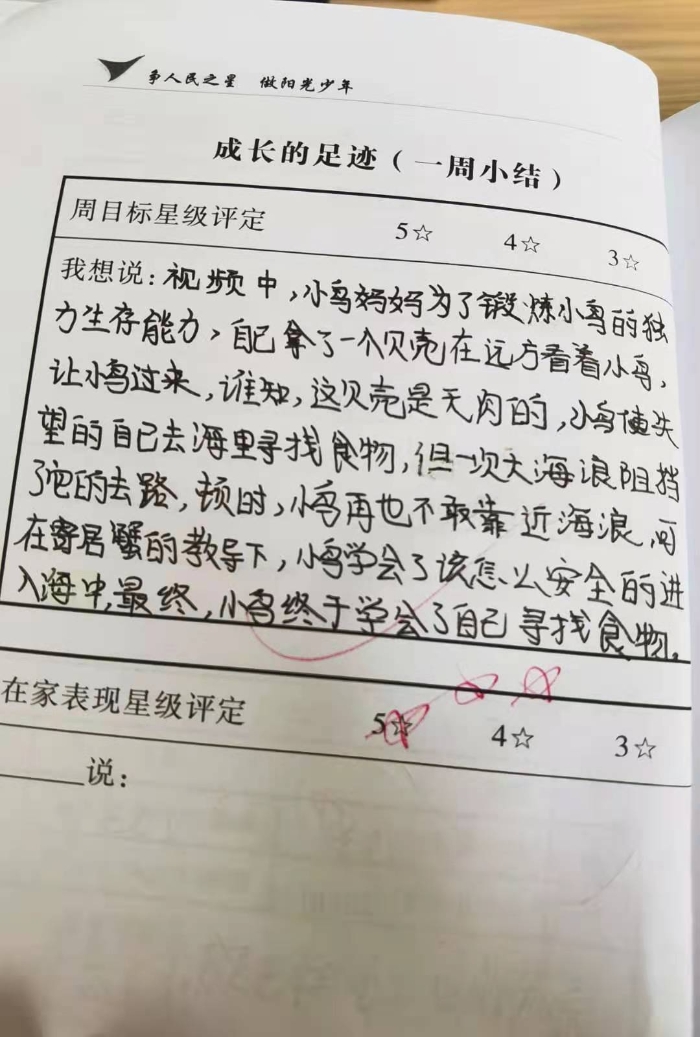 争人民之星 做阳光少年
成长的足迹（一周小结）
周目标星级评定 5☆ 4☆ 3☆
我想说：视频中，小鸟妈妈为了锻炼小鸟的独
力生存能力，自己拿了一个贝壳在远方看着小鸟，
让小鸟过来，谁知，这贝壳是无肉的，小鸟便失
望的自己去海里寻找食物，但一次大海浪阻挡
了它的去路，顿时，小鸟再也不敢靠近海浪，可
在寄居蟹的教导下，小鸟学会了该怎么安全的进
入海中，最终，小鸟终于学会了自己寻找食物。
在家表现星级评定 5☆ 4☆ 3☆
说：